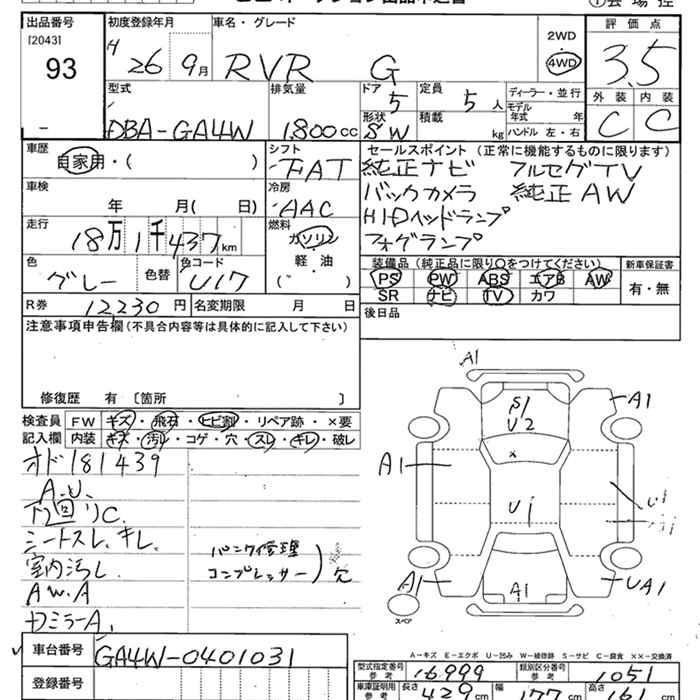 出品番号 初度登録年月 車名・グレード 評価点
[2043] 2WD
93 H 26 9月 RVR G 4WD 3.5
型式 排気量 ドア 5 定員 5人 ディーラー・並行 外装 内装
モデル年式 年
DBA-GA4W 1,800cc 形状 SW 積載 kg ハンドル 左・右 C C
車歴 シフト セールスポイント (正常に機能するものに限ります)
自家用・( ) FAT 純正ナビ フルセグTV
車検 冷房 バックカメラ 純正AW
年 月( 日) AAC HIDヘッドランプ
走行 燃料 フォグランプ
18万1千437km ガソリン
色 色替 色コード 軽・油 装備品 (純正品に限り○をつけてください) 新車保証書
グレー U17 ( ) PS PW ABS エアB AW 有・無
SR ナビ TV カワ
R券 12,230円 名変期限 月 日 後日品
注意事項申告欄 (不具合内容等は具体的に記入して下さい)
修復歴 有 [箇所 ]
検査員 FW キズ・飛石・ヒビ割・リペア跡・×要
記入欄 内装 キズ・汚レ・コゲ・穴・スレ・キレ・破レ
オド181439
シートスレ、キレ、
室内汚レ パンク修理
コンプレッサー)欠
A.W.A
ドミラーA、
A1
A1
S1
U2
A1
×
U1
U1
A1
A1
UA1
スペア
A-キズ E-エクボ U-凹み W-補修跡 S-サビ C-腐食 ××-交換済
車台番号 GA4W-0401031
型式指定番号 参考 16999 類別区分番号 参考 1051
登録番号 車庫証明用 参考 長さ 429cm 幅 177cm 高さ 161cm